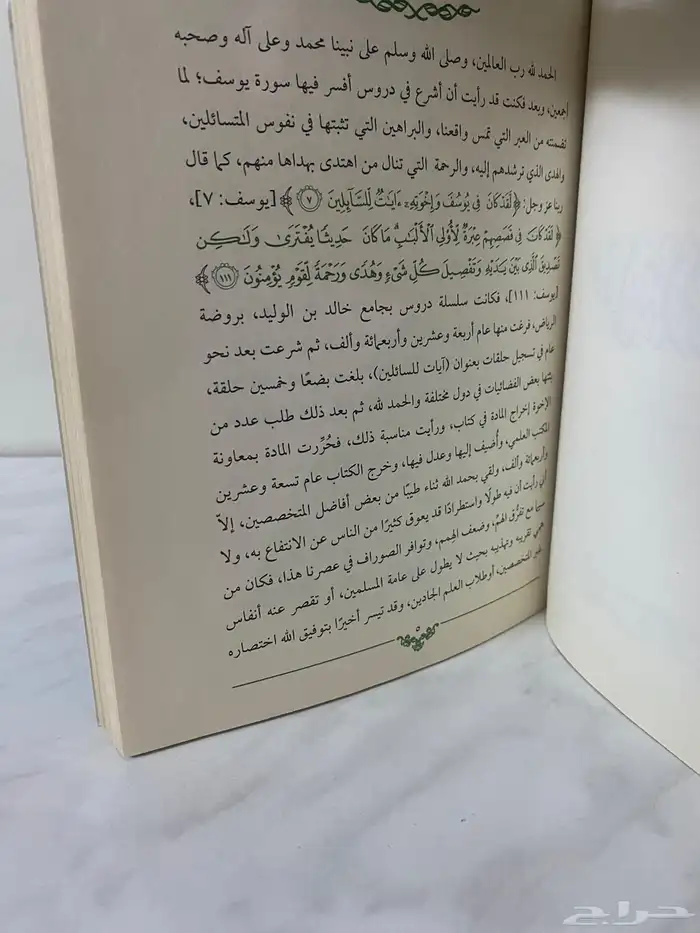 الحمد لله رب العالمين، وصلى الله وسلم على نبينا محمد وعلى آله وصحبه
أجمعين، وبعد فكنت قد رأيت أن أشرع في دروس أفسر فيها سورة يوسف؛ لما
تضمنته من العبر التي تمس واقعنا، والبراهين التي تثبتها في نفوس المتسائلين،
والهدى الذي ترشدهم إليه، والرحمة التي تنال من اهتدى بهداها منهم، كما قال
ربنا عز وجل: ﴿لَّقَدْ كَانَ فِي يُوسُفَ وَإِخْوَتِهِۦٓ ءَايَٰتٌ لِّلسَّآئِلِينَ ۝٧﴾ [يوسف: ٧]،
﴿لَقَدْ كَانَ فِي قَصَصِهِمْ عِبْرَةٌ لِّأُوْلِي ٱلْأَلْبَٰبِۗ مَا كَانَ حَدِيثًا يُفْتَرَىٰ وَلَٰكِن
تَصْدِيقَ ٱلَّذِي بَيْنَ يَدَيْهِ وَتَفْصِيلَ كُلِّ شَيْءٍ وَهُدًى وَرَحْمَةً لِّقَوْمٍ يُؤْمِنُونَ ۝١١١﴾
[يوسف: ١١١]، فكانت سلسلة دروس بجامع خالد بن الوليد، بروضة
الرياض، فرغت منها عام أربعة وعشرين وأربعمائة وألف، ثم شرعت بعد نحو
عام في تسجيل حلقات بعنوان (آيات للسائلين)، بلغت بضعًا وخمسين حلقة،
بثتها بعض الفضائيات في دول مختلفة والحمد لله، ثم بعد ذلك طلب عدد من
الإخوة إخراج المادة في كتاب، ورأيت مناسبة ذلك، فحُرِّرت المادة بمعاونة
المكتب العلمي، وأُضيف إليها وعدل فيها، وخرج الكتاب عام تسعة وعشرين
وأربعمائة وألف، ولقي بحمد الله ثناء طيبًا من بعض أفاضل المتخصصين، إلاّ
أني رأيت أن فيه طولًا واستطرادًا قد يعوق كثيرًا من الناس عن الانتفاع به، ولا
سيما مع تفرُّق الهمِّ، وضعف الهمم، وتوافر الصوراف في عصرنا هذا، فكان من
همي تقريبه وتهذيبه بحيث لا يطول على عامة المسلمين، أو تقصر عنه أنفاس
غير المتخصصين، أو طلاب العلم الجادين، وقد تيسر أخيرًا بتوفيق الله اختصاره
٥
حراج